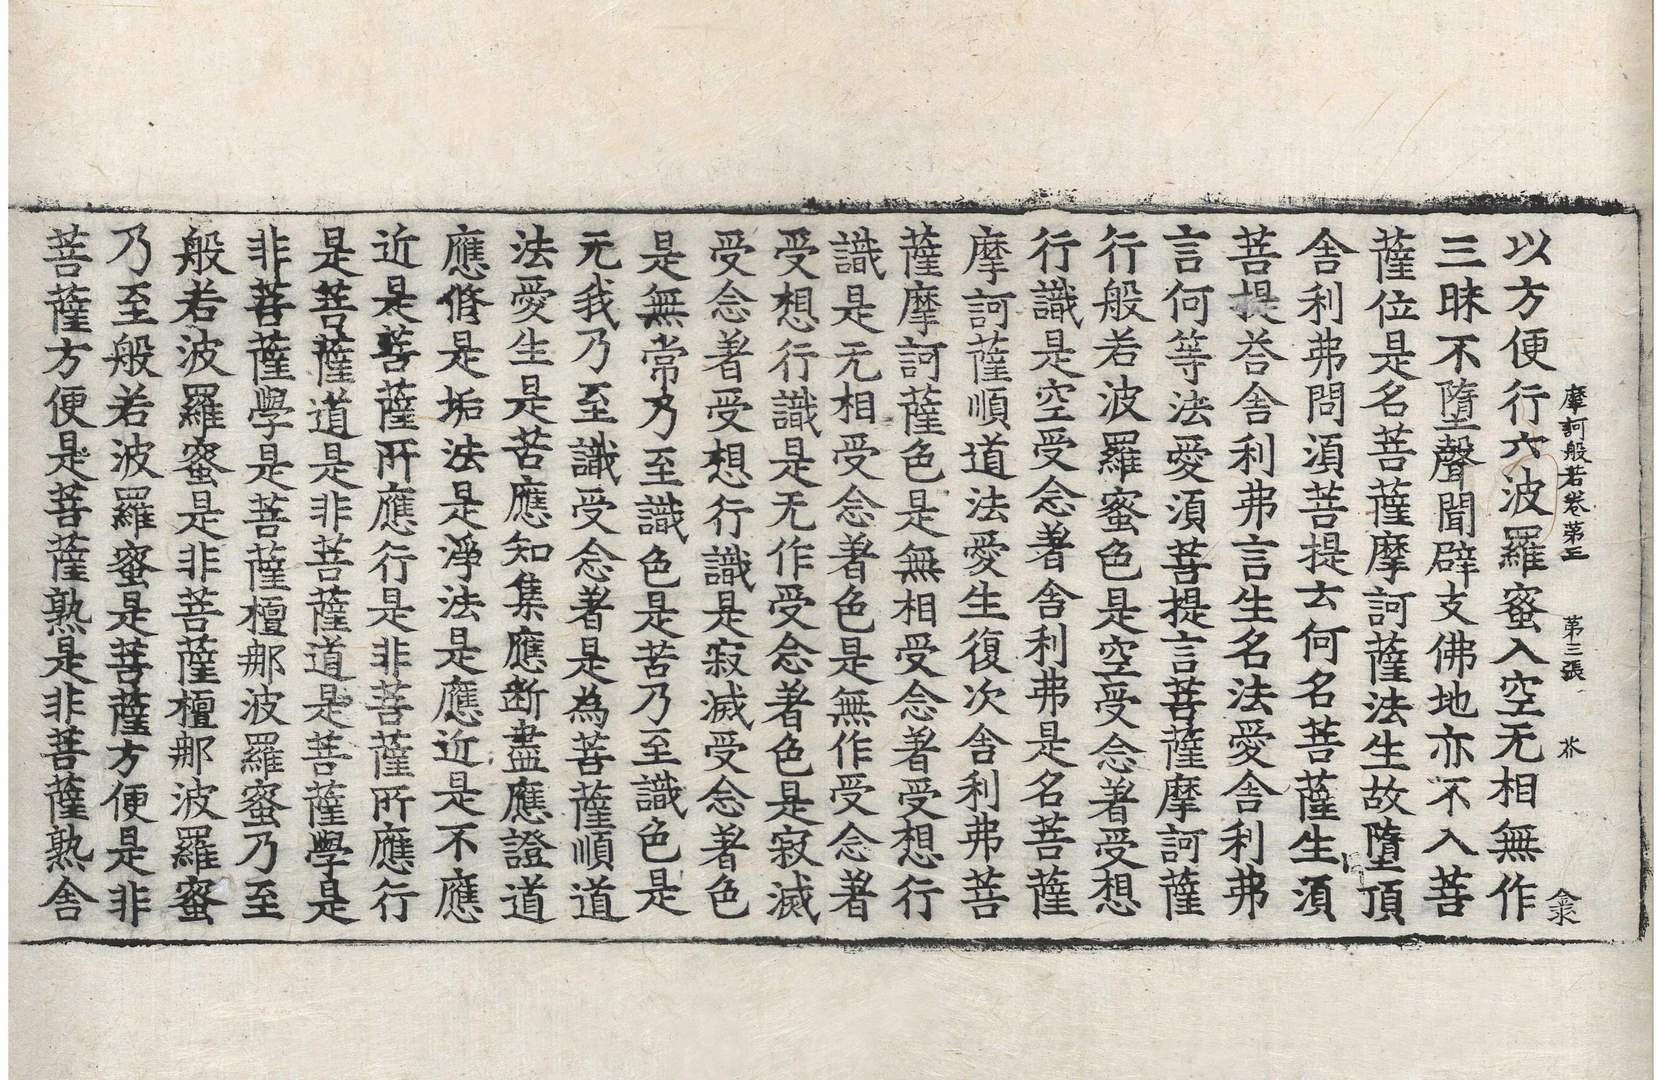 摩訶般若卷第三 第三張
以方便行六波羅蜜入空无相無作
三昧不墮聲聞辟支佛地亦不入菩
薩位是名菩薩摩訶薩法生故墮頂
舍利弗問須菩提云何名菩薩生須
菩提荅舍利弗言生名法愛舍利弗
言何等法愛須菩提言菩薩摩訶薩
行般若波羅蜜色是空受念著受想
行識是空受念著舍利弗是名菩薩
摩訶薩順道法愛生復次舍利弗菩
薩摩訶薩色是無相受念著受想行
識是无相受念著色是無作受念著
受想行識是无作受念著色是寂滅
受念著受想行識是寂滅受念著色
是無常乃至識色是苦乃至識色是
无我乃至識受念著是為菩薩順道
法愛生是苦應知集應断盡應證道
應脩是垢法是淨法是應近是不應
近是菩薩所應行是非菩薩所應行
是菩薩道是非菩薩道是菩薩學是
非菩薩學是菩薩檀那波羅蜜乃至
般若波羅蜜是非菩薩檀那波羅蜜
乃至般若波羅蜜是菩薩方便是非
菩薩方便是菩薩熟是非菩薩熟舍